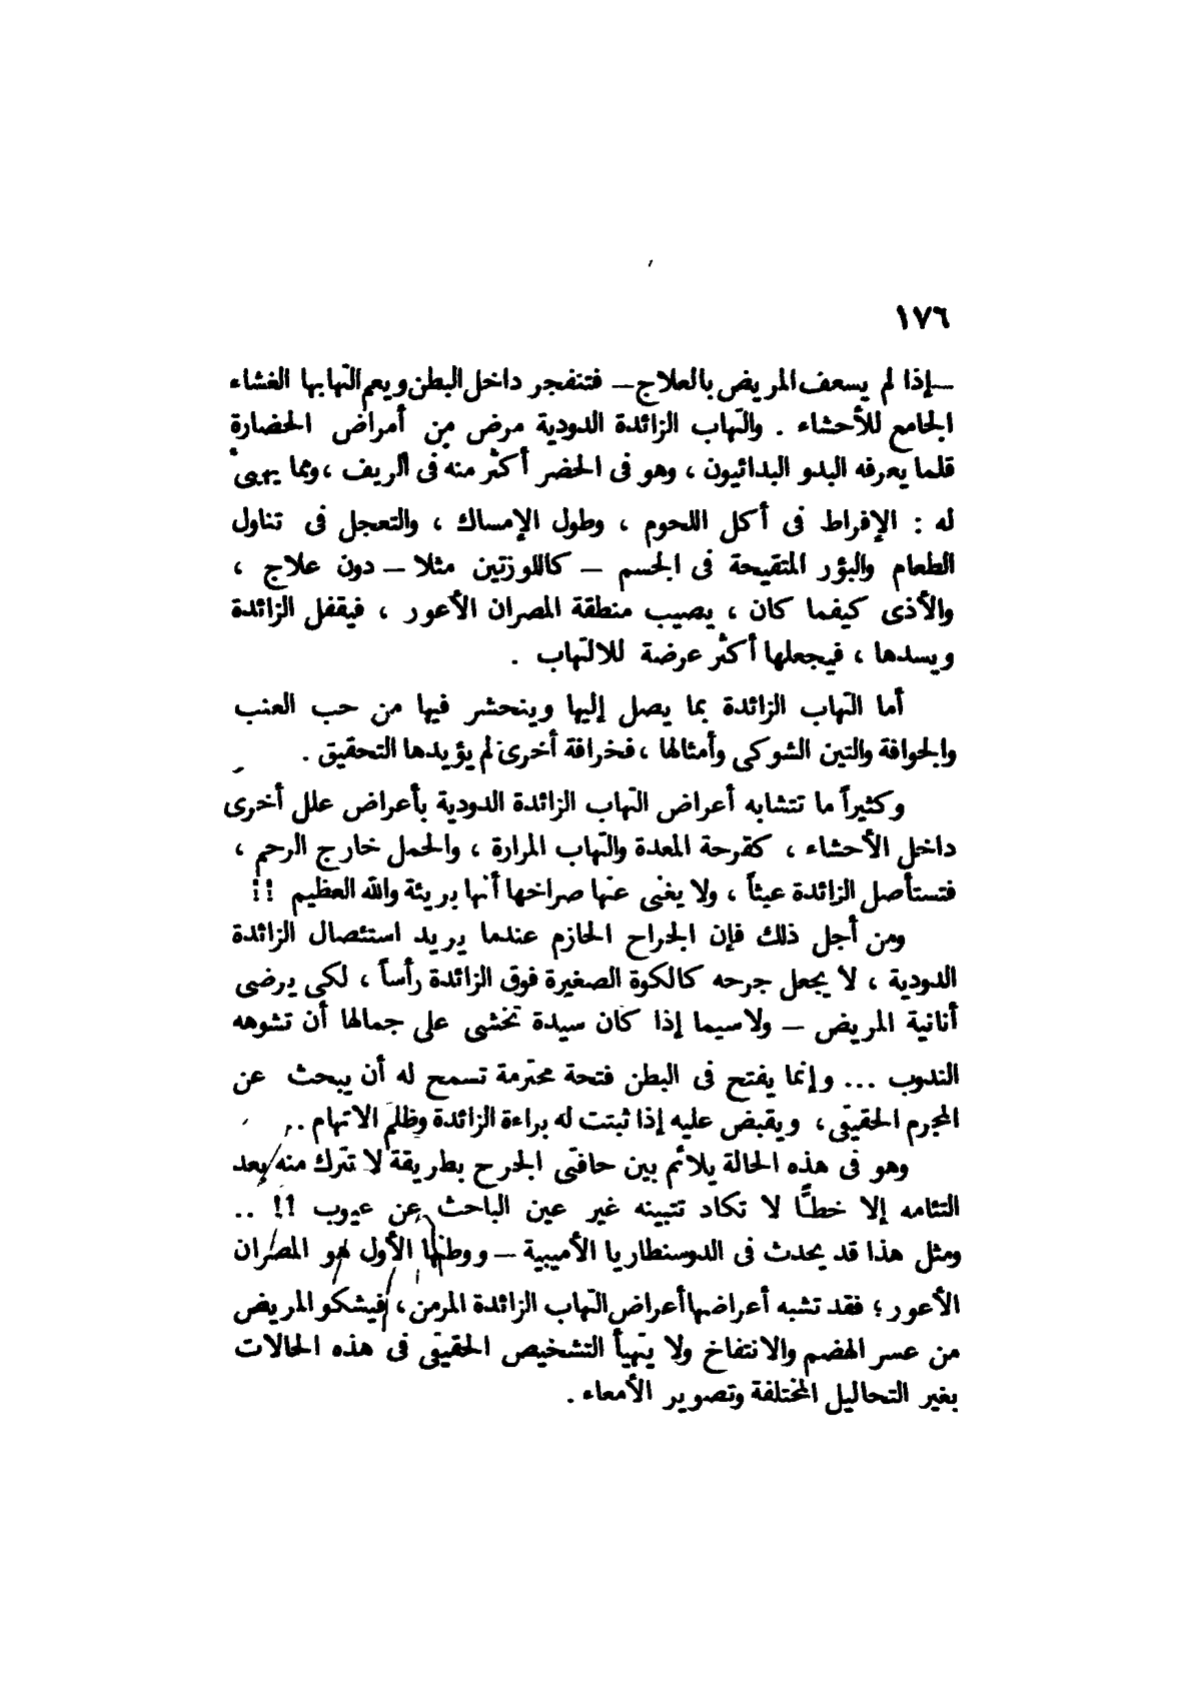 ١٧٦
—إذا لم يسعف المريض بالعلاج— فتنفجر داخل البطن ويعم التهابها الغشاء
الجامع للأحشاء . والتهاب الزائدة الدودية مرض من أمراض الحضارة
قلما يعرفه البدو البدائيون ، وهو فى الحضر أكثر منه فى الريف ، ومما يهيئ
له : الإفراط فى أكل اللحوم ، وطول الإمساك ، والتعجل فى تناول
الطعام والبؤر المتقيحة فى الجسم — كاللوزتين مثلا — دون علاج ،
والأذى كيفما كان ، يصيب منطقة المصران الأعور ، فيقفل الزائدة
ويسدها ، فيجعلها أكثر عرضة للالتهاب .
أما التهاب الزائدة بما يصل إليها وينحشر فيها من حب العنب
والجوافة والتين الشوكى وأمثالها ، فخرافة أخرى لم يؤيدها التحقيق .
وكثيراً ما تتشابه أعراض التهاب الزائدة الدودية بأعراض علل أخرى
داخل الأحشاء ، كقرحة المعدة والتهاب المرارة ، والحمل خارج الرحم ،
فتستأصل الزائدة عبثاً ، ولا يغنى عنها صراخها أنها بريئة والله العظيم !!
ومن أجل ذلك فإن الجراح الحازم عندما يريد استئصال الزائدة
الدودية ، لا يجعل جرحه كالكوة الصغيرة فوق الزائدة رأساً ، لكى يرضى
أنانية المريض — ولاسيما إذا كان سيدة تخشى على جمالها أن تشوهه
الندوب ... وإنما يفتح فى البطن فتحة محترمة تسمح له أن يبحث عن
المجرم الحقيقى ، ويقبض عليه إذا ثبتت له براءة الزائدة وظلم الاتهام ..
وهو فى هذه الحالة يلائم بين حافتى الجرح بطريقة لا تترك منه بعد
التئامه إلا خطًّا لا تكاد تتبينه غير عين الباحث عن عيوب !! ..
ومثل هذا قد يحدث فى الدوسنطاريا الأميبية — ووطنها الأول هو المصران
الأعور ؛ فقد تشبه أعراضها أعراض التهاب الزائدة المزمن ، فيشكو المريض
من عسر الهضم والانتفاخ ولا يتهيأ التشخيص الحقيقى فى هذه الحالات
بغير التحاليل المختلفة وتصوير الأمعاء .